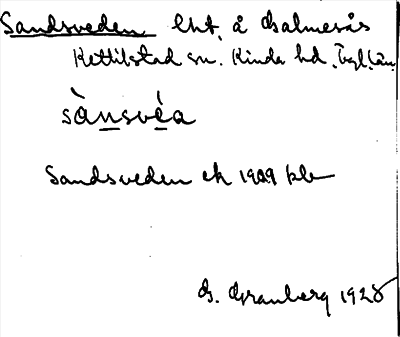 Sandsveden, lht. å Galmesås
Kettilstad sn. Kinda hd. Ögl. län
sànsvéa
Sandsveden ek 1909 kb
G. Granberg 1928